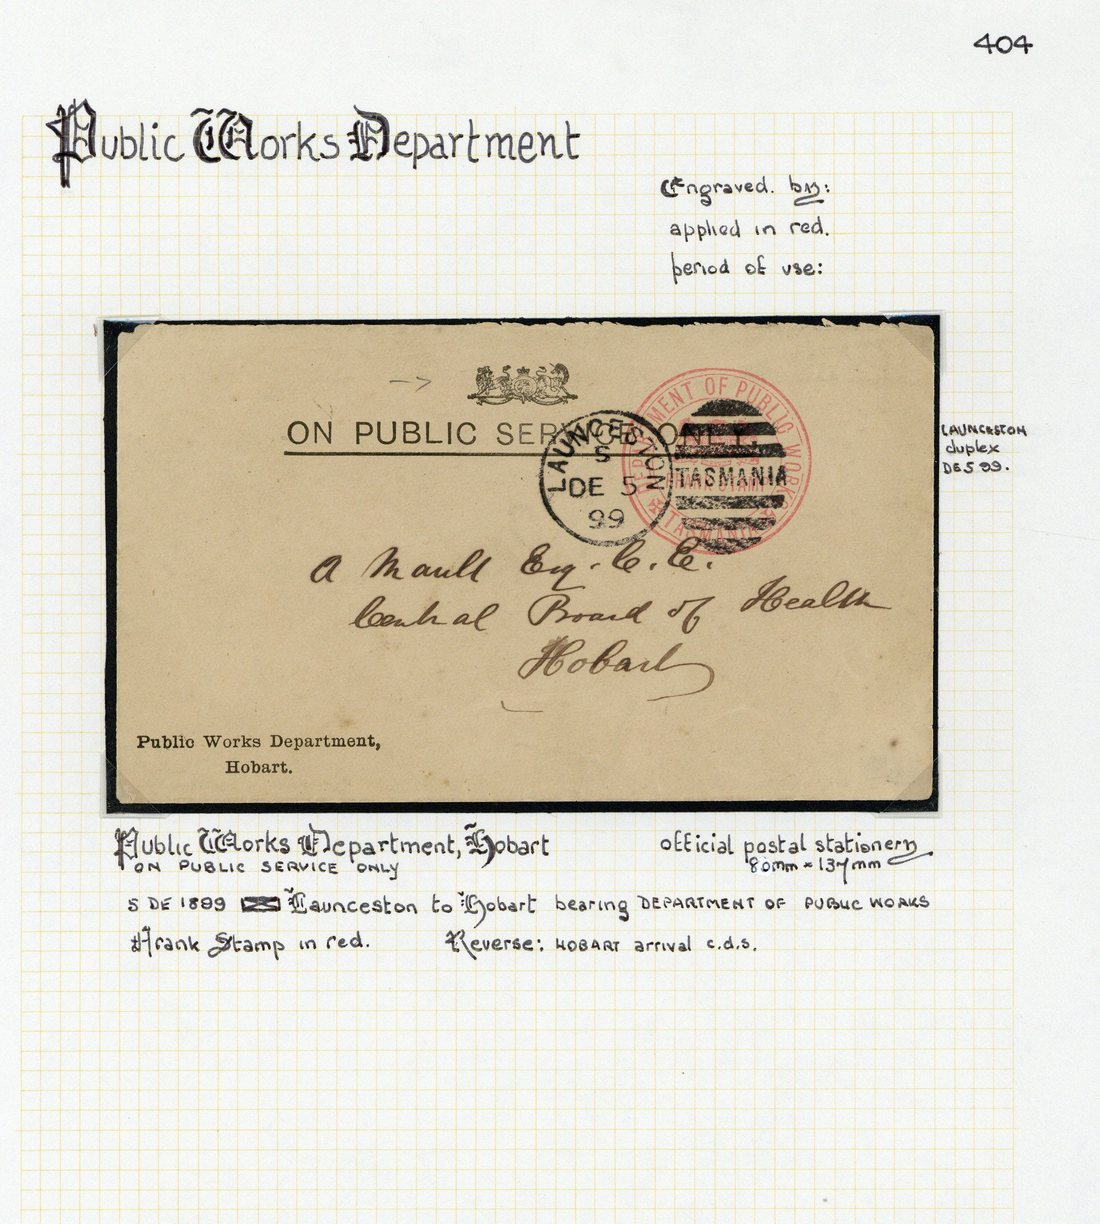 404
Public Works Department
Engraved. by:
applied in red.
period of use:
ON PUBLIC SERVICE ONLY.
DEPARTMENT OF PUBLIC WORKS
FRANK STAMP
TASMANIA
LAUNCESTON
S
DE 5
99
TASMANIA
LAUNCESTON
duplex
DE 5 99.
A Mault Esq. C. E.
Central Board of Health
Hobart
Public Works Department,
Hobart.
Public Works Department, Hobart official postal stationery
ON PUBLIC SERVICE ONLY 80mm × 137mm
5 DE 1899 Launceston to Hobart bearing DEPARTMENT OF PUBLIC WORKS
Frank Stamp in red. Reverse: HOBART arrival c.d.s.